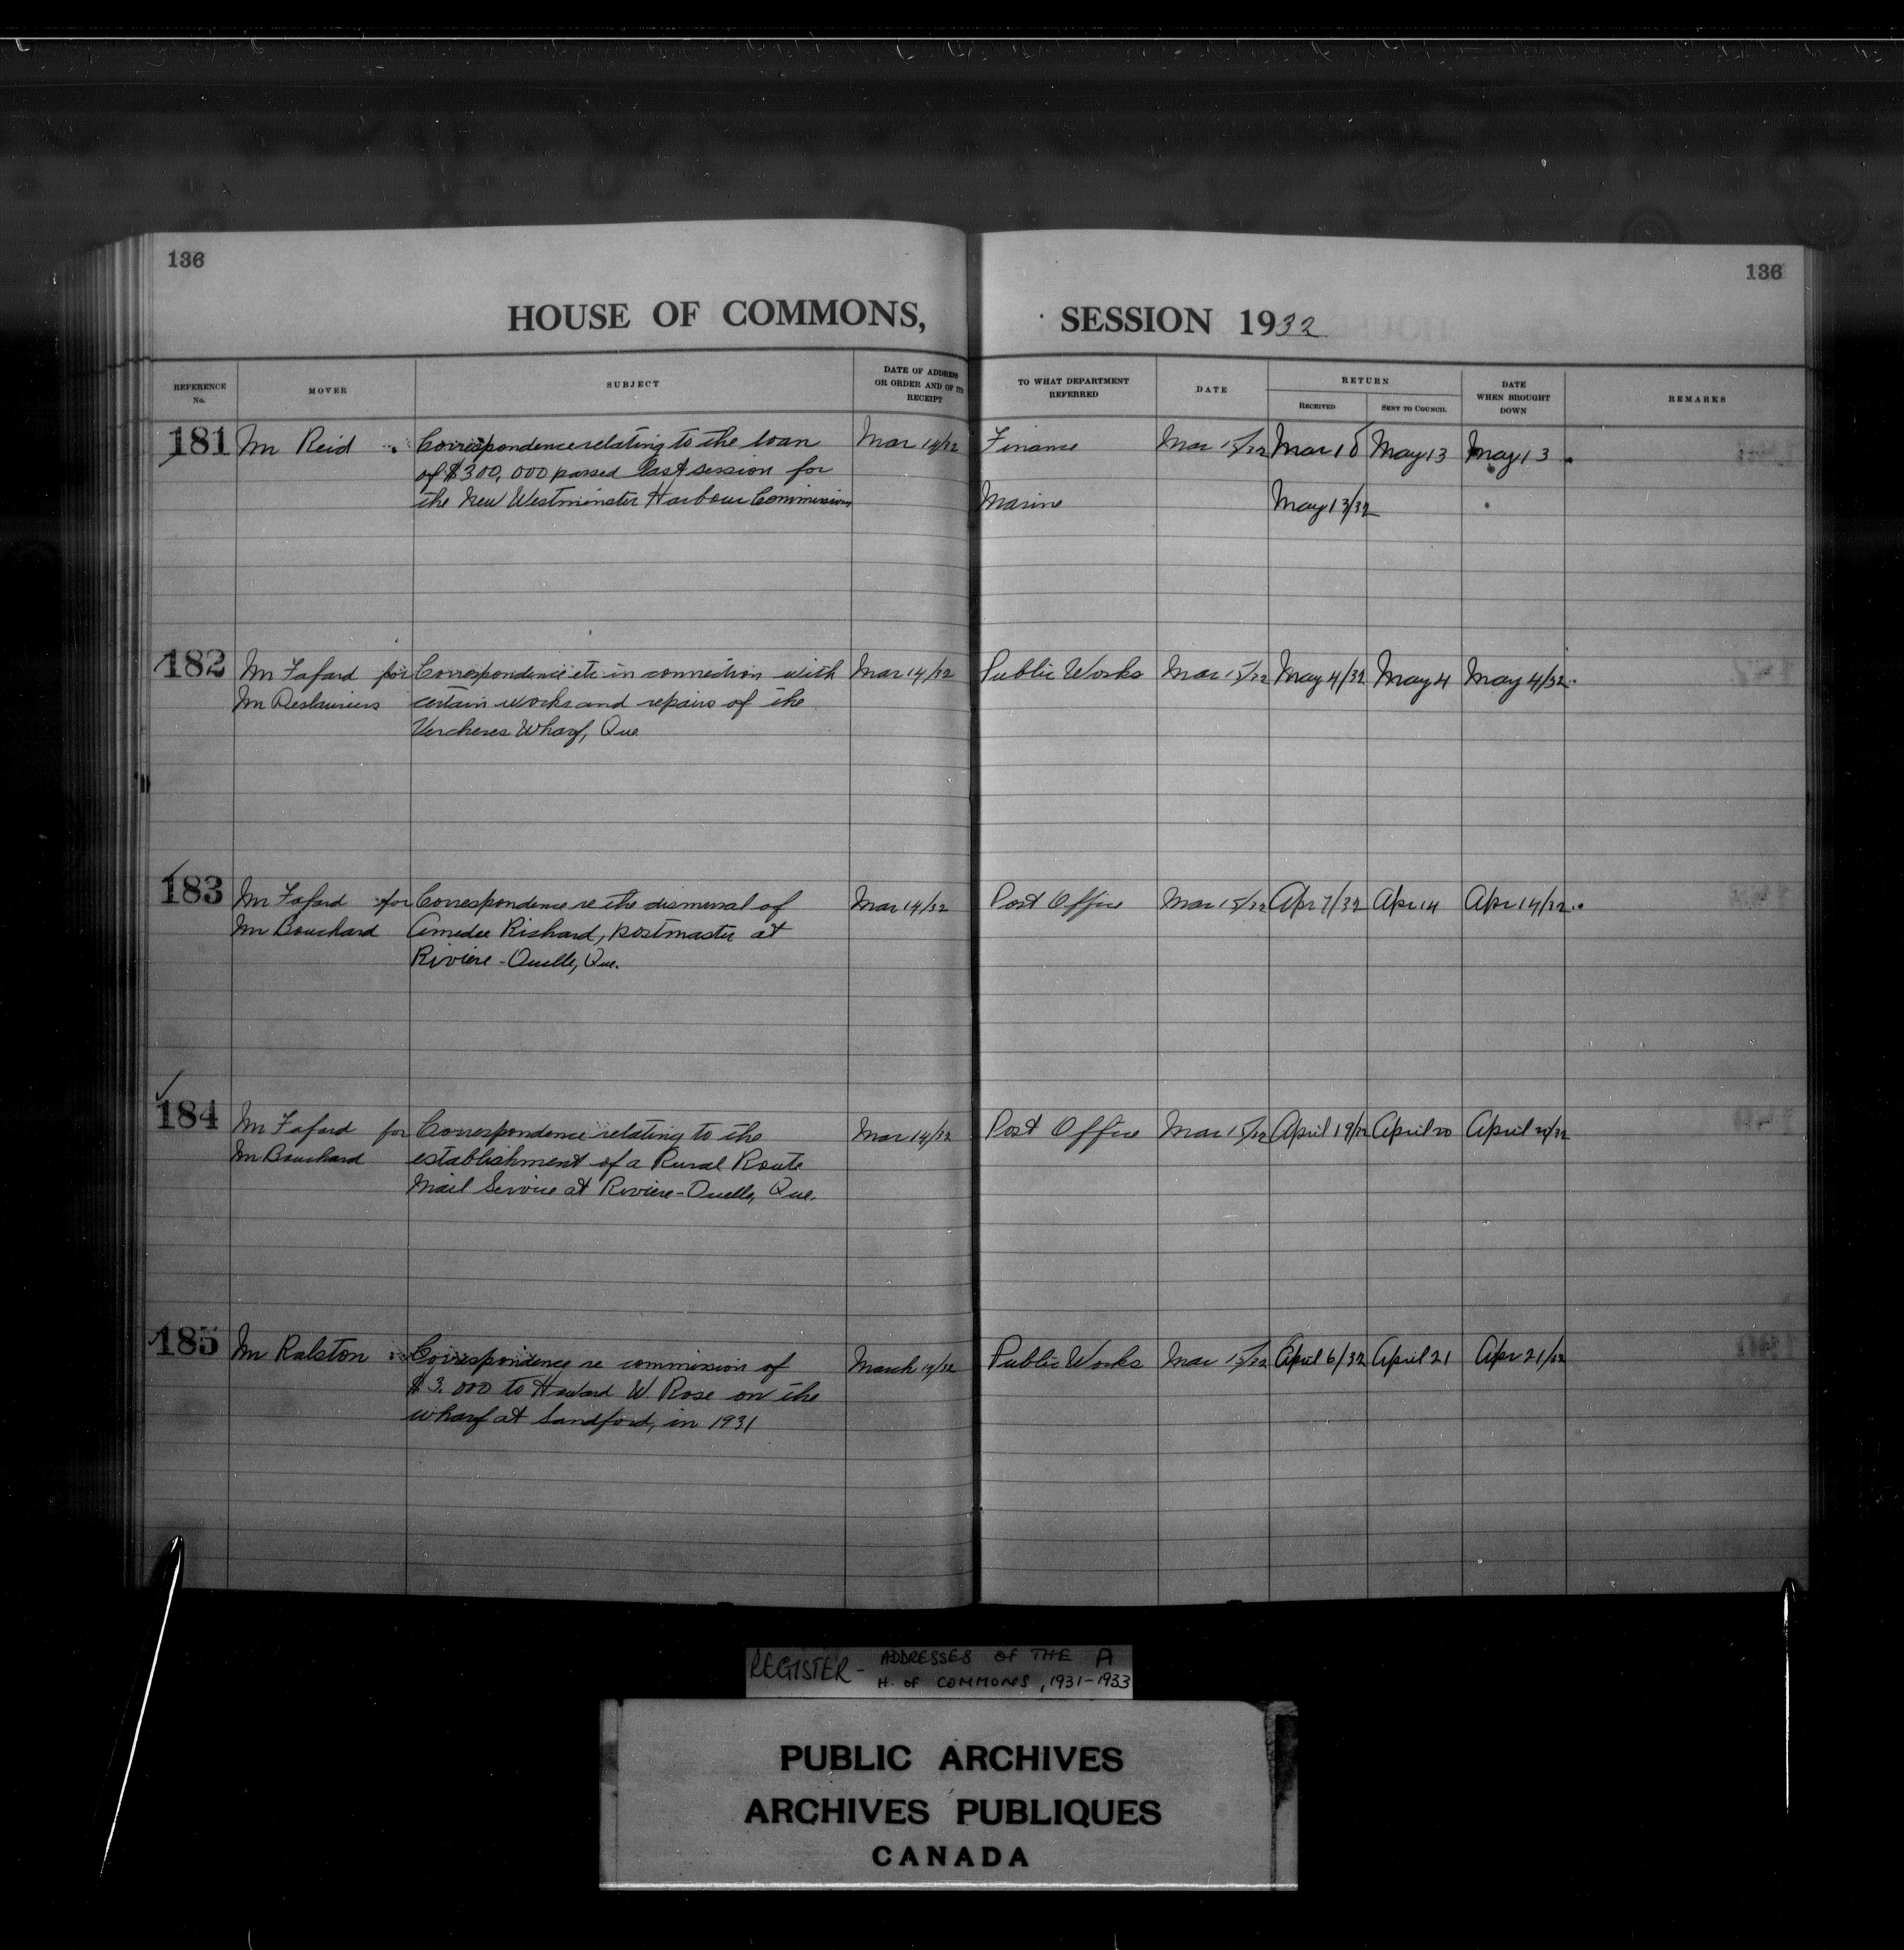 136
136
HOUSE OF COMMONS,
SESSION 1932
REFERENCE No.
MOVER
SUBJECT
DATE OF ADDRESS OR ORDER AND OF ITS RECEIPT
TO WHAT DEPARTMENT REFERRED
DATE
RETURN
RECEIVED
SENT TO COUNCIL
DATE WHEN BROUGHT DOWN
REMARKS
181 Mr Reid Correspondence relating to the loan Mar 14/32 Finance Mar 15/32 Mar 18 May 13 May 13
of $300,000 passed last session for
the New Westminster Harbour Commission Marine May 13/32
182 Mr Fafard for Correspondence etc in connection with Mar 14/32 Public Works Mar 15/32 May 4/32 May 4 May 4/32
Mr certain works and repairs of the
Vercheres Wharf, Que
183 Mr Fafard for Correspondence re the dismissal of Mar 14/32 Post Office Mar 15/32 Apr 7/32 Apr 14 Apr 14/32
Mr Bouchard Amedee Richard, postmaster at
Riviere-Ouelle, Que.
184 Mr Fafard for Correspondence relating to the Mar 14/32 Post Office Mar 15/32 April 19/32 April 20 April
Mr Bouchard establishment of a Rural Route
Mail Service at Riviere-Ouelle, Que.
185 Mr Ralston Correspondence re commission of March 14/32 Public Works Mar 15/32 April 6/32 April 21 Apr 21/32
$3,000 to W. Rose on the
wharf at Sandford, in 1931
REGISTER - ADDRESSES OF THE A
H. OF COMMONS, 1931-1933
PUBLIC ARCHIVES
ARCHIVES PUBLIQUES
CANADA